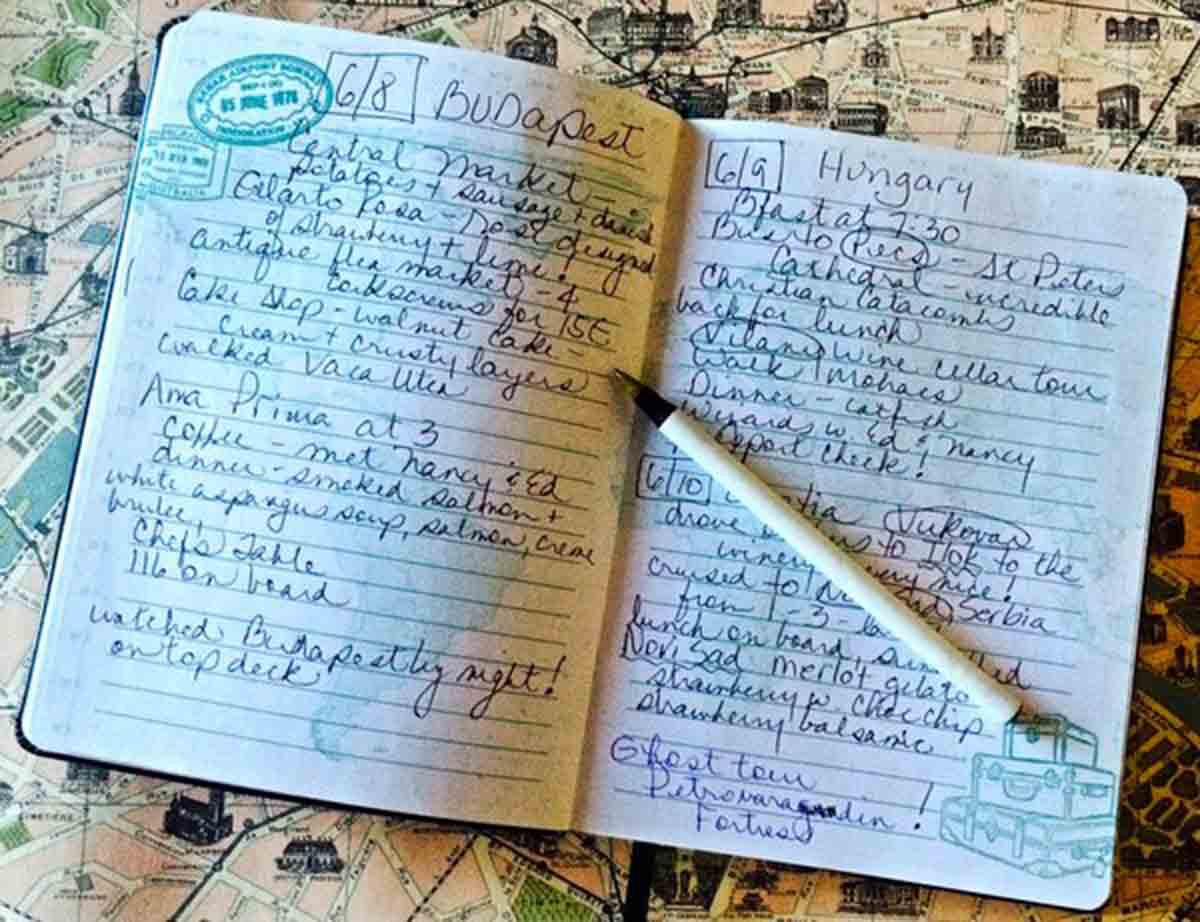 6/8 Budapest
Central Market -
potatoes + sausage + dried
Gelarto Rosa - Rose designed
of strawberry + lime!
antique flea market - 4
corkscrews for 15E
Cake Shop - walnut cake -
cream + crusty layers
walked Vaca Utca
Ama Prima at 3
coffee - met Nancy & Ed
dinner - smoked salmon +
white asparagus soup, salmon, creme
brulee,
Chefs Table
116 on board
watched Budapest by night!
on top deck
6/9 Hungary
Bfast at 7:30
Bus to Pecs - St Peters
Cathedral - incredible
Christian Catacombs
back for lunch
Villany wine cellar tour
Walk Mohacs
Dinner - catfish
Wizards w. Ed & Nancy
port check!
6/10 Vukovar
drove to Ilok to the
winery nice!
cruised to Serbia
from 1-3 -
lunch on board,
Novi Sad merlot gelato
strawberry w choc chip
strawberry balsamic
Ghost tour
Petrovaradin !
Fortress